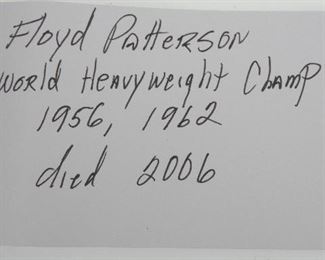 Floyd Patterson
World Heavyweight Champ
1956, 1962
died 2006